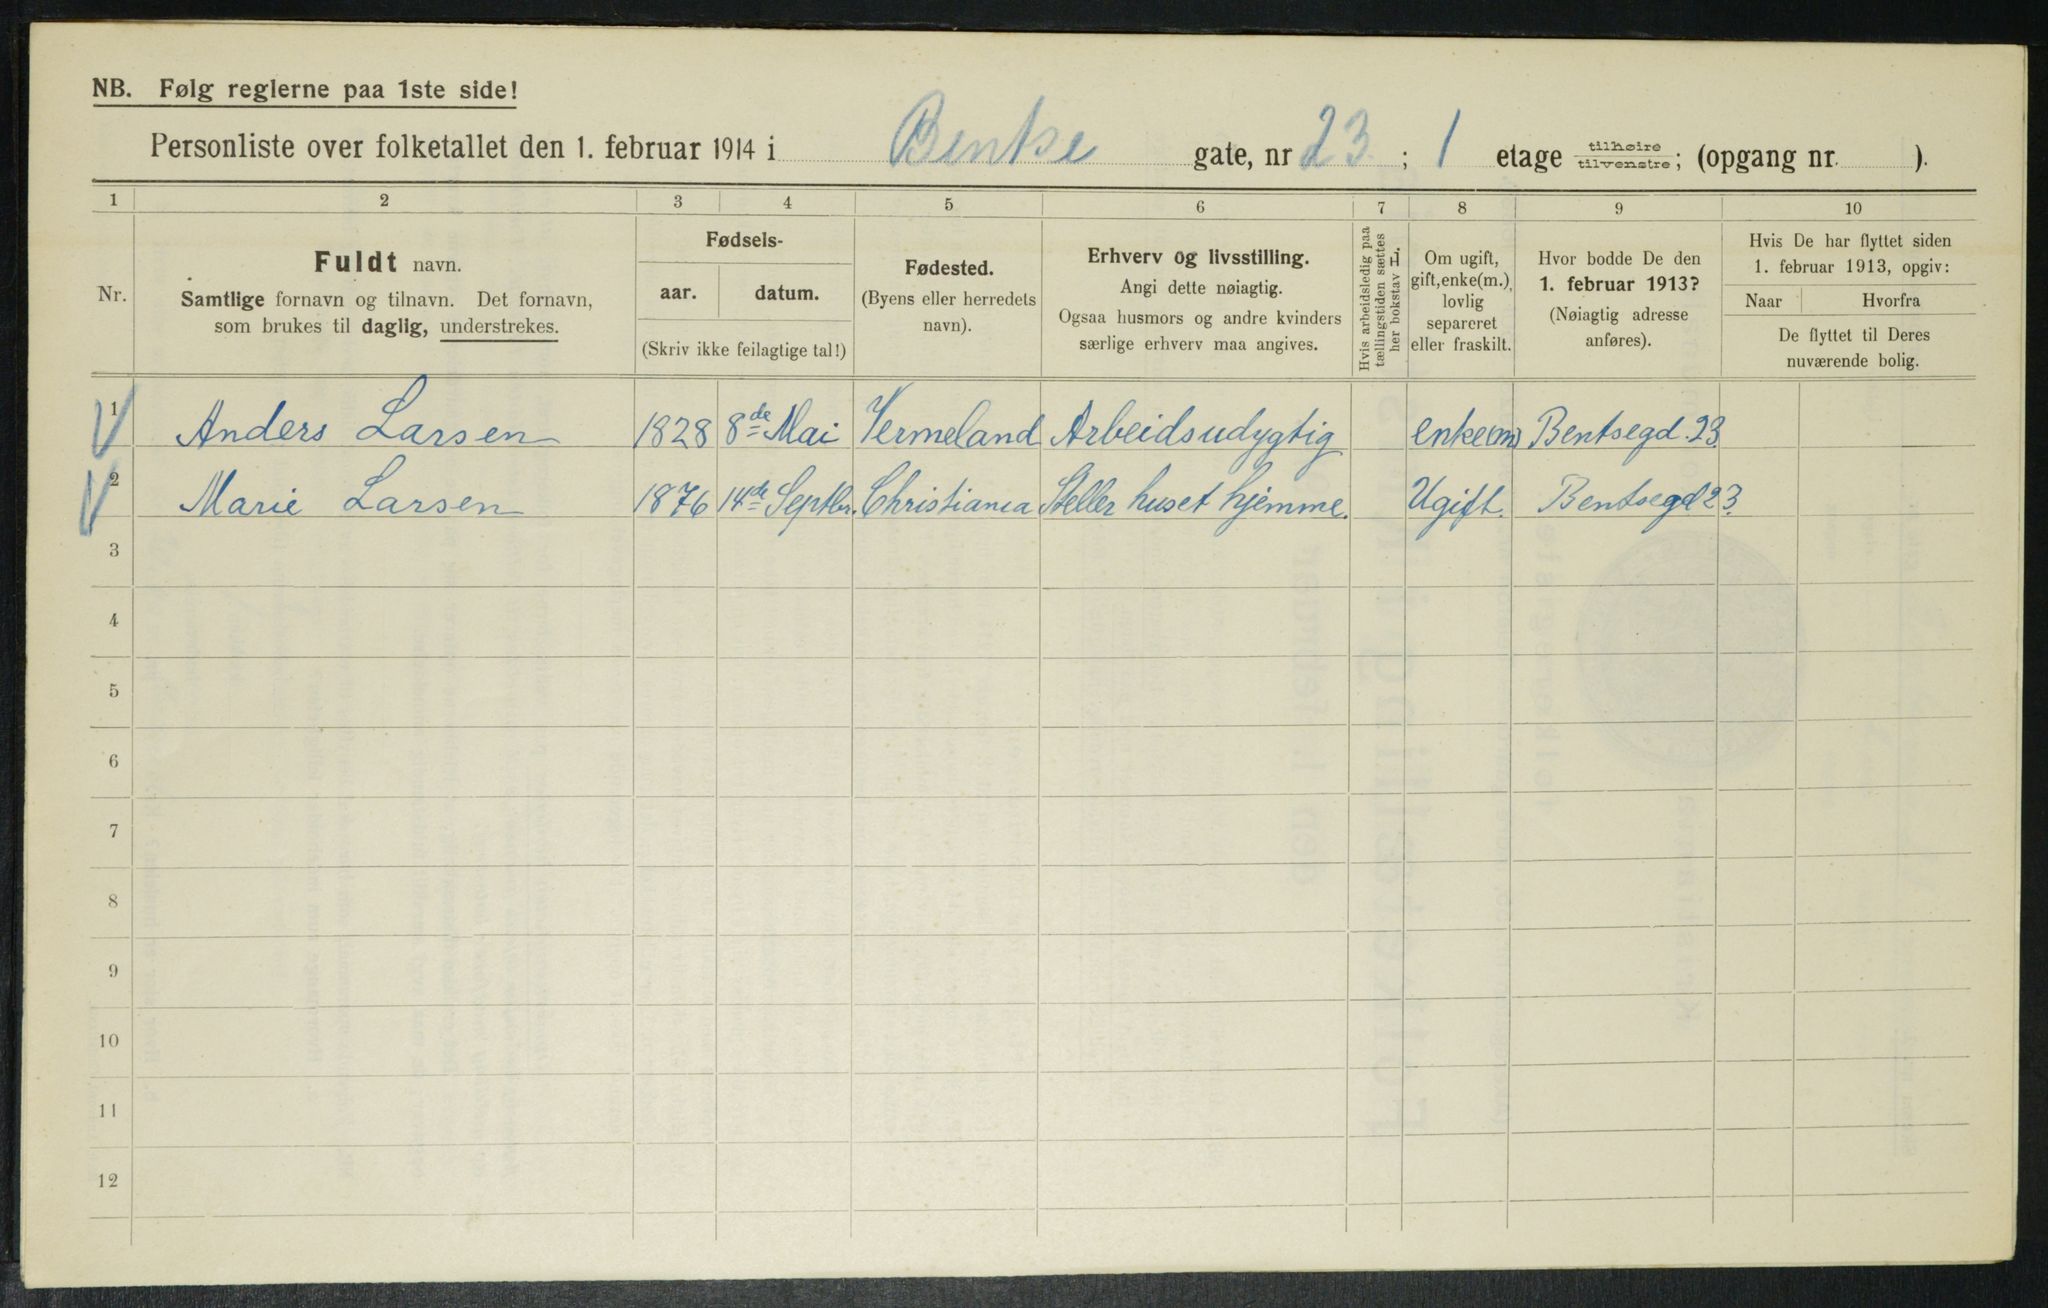 NB. Følg reglerne paa 1ste side!
Personliste over folketallet den 1. februar 1914 i Bentse gate, nr 23 ; 1 etage tilhøire tilvenstre; (opgang nr. ).
1 2 3 4 5 6 7 8 9 10
Nr.
Fuldt navn.
Samtlige fornavn og tilnavn. Det fornavn,
som brukes til daglig, understrekes.
Fødsels-
aar. datum.
(Skriv ikke feilagtige tal!)
Fødested.
(Byens eller herredets
navn).
Erhverv og livsstilling.
Angi dette nøiagtig.
Ogsaa husmors og andre kvinders
særlige erhverv maa angives.
Hvis arbeidsledig paa
tællingstiden sættes
her bokstav L.
Om ugift,
gift, enke(m.),
lovlig
separeret
eller fraskilt.
Hvor bodde De den
1. februar 1913?
(Nøiagtig adresse
anføres).
Hvis De har flyttet siden
1. februar 1913, opgiv:
Naar Hvorfra
De flyttet til Deres
nuværende bolig.
1 Anders Larsen 1828 8de Mai Vermeland Arbeidsudygtig enke(m) Bentsegd. 23.
2 Marie Larsen 1876 14de Septbr. Christiania Steller huset hjemme. Ugift. Bentsegd 23.
3
4
5
6
7
8
9
10
11
12